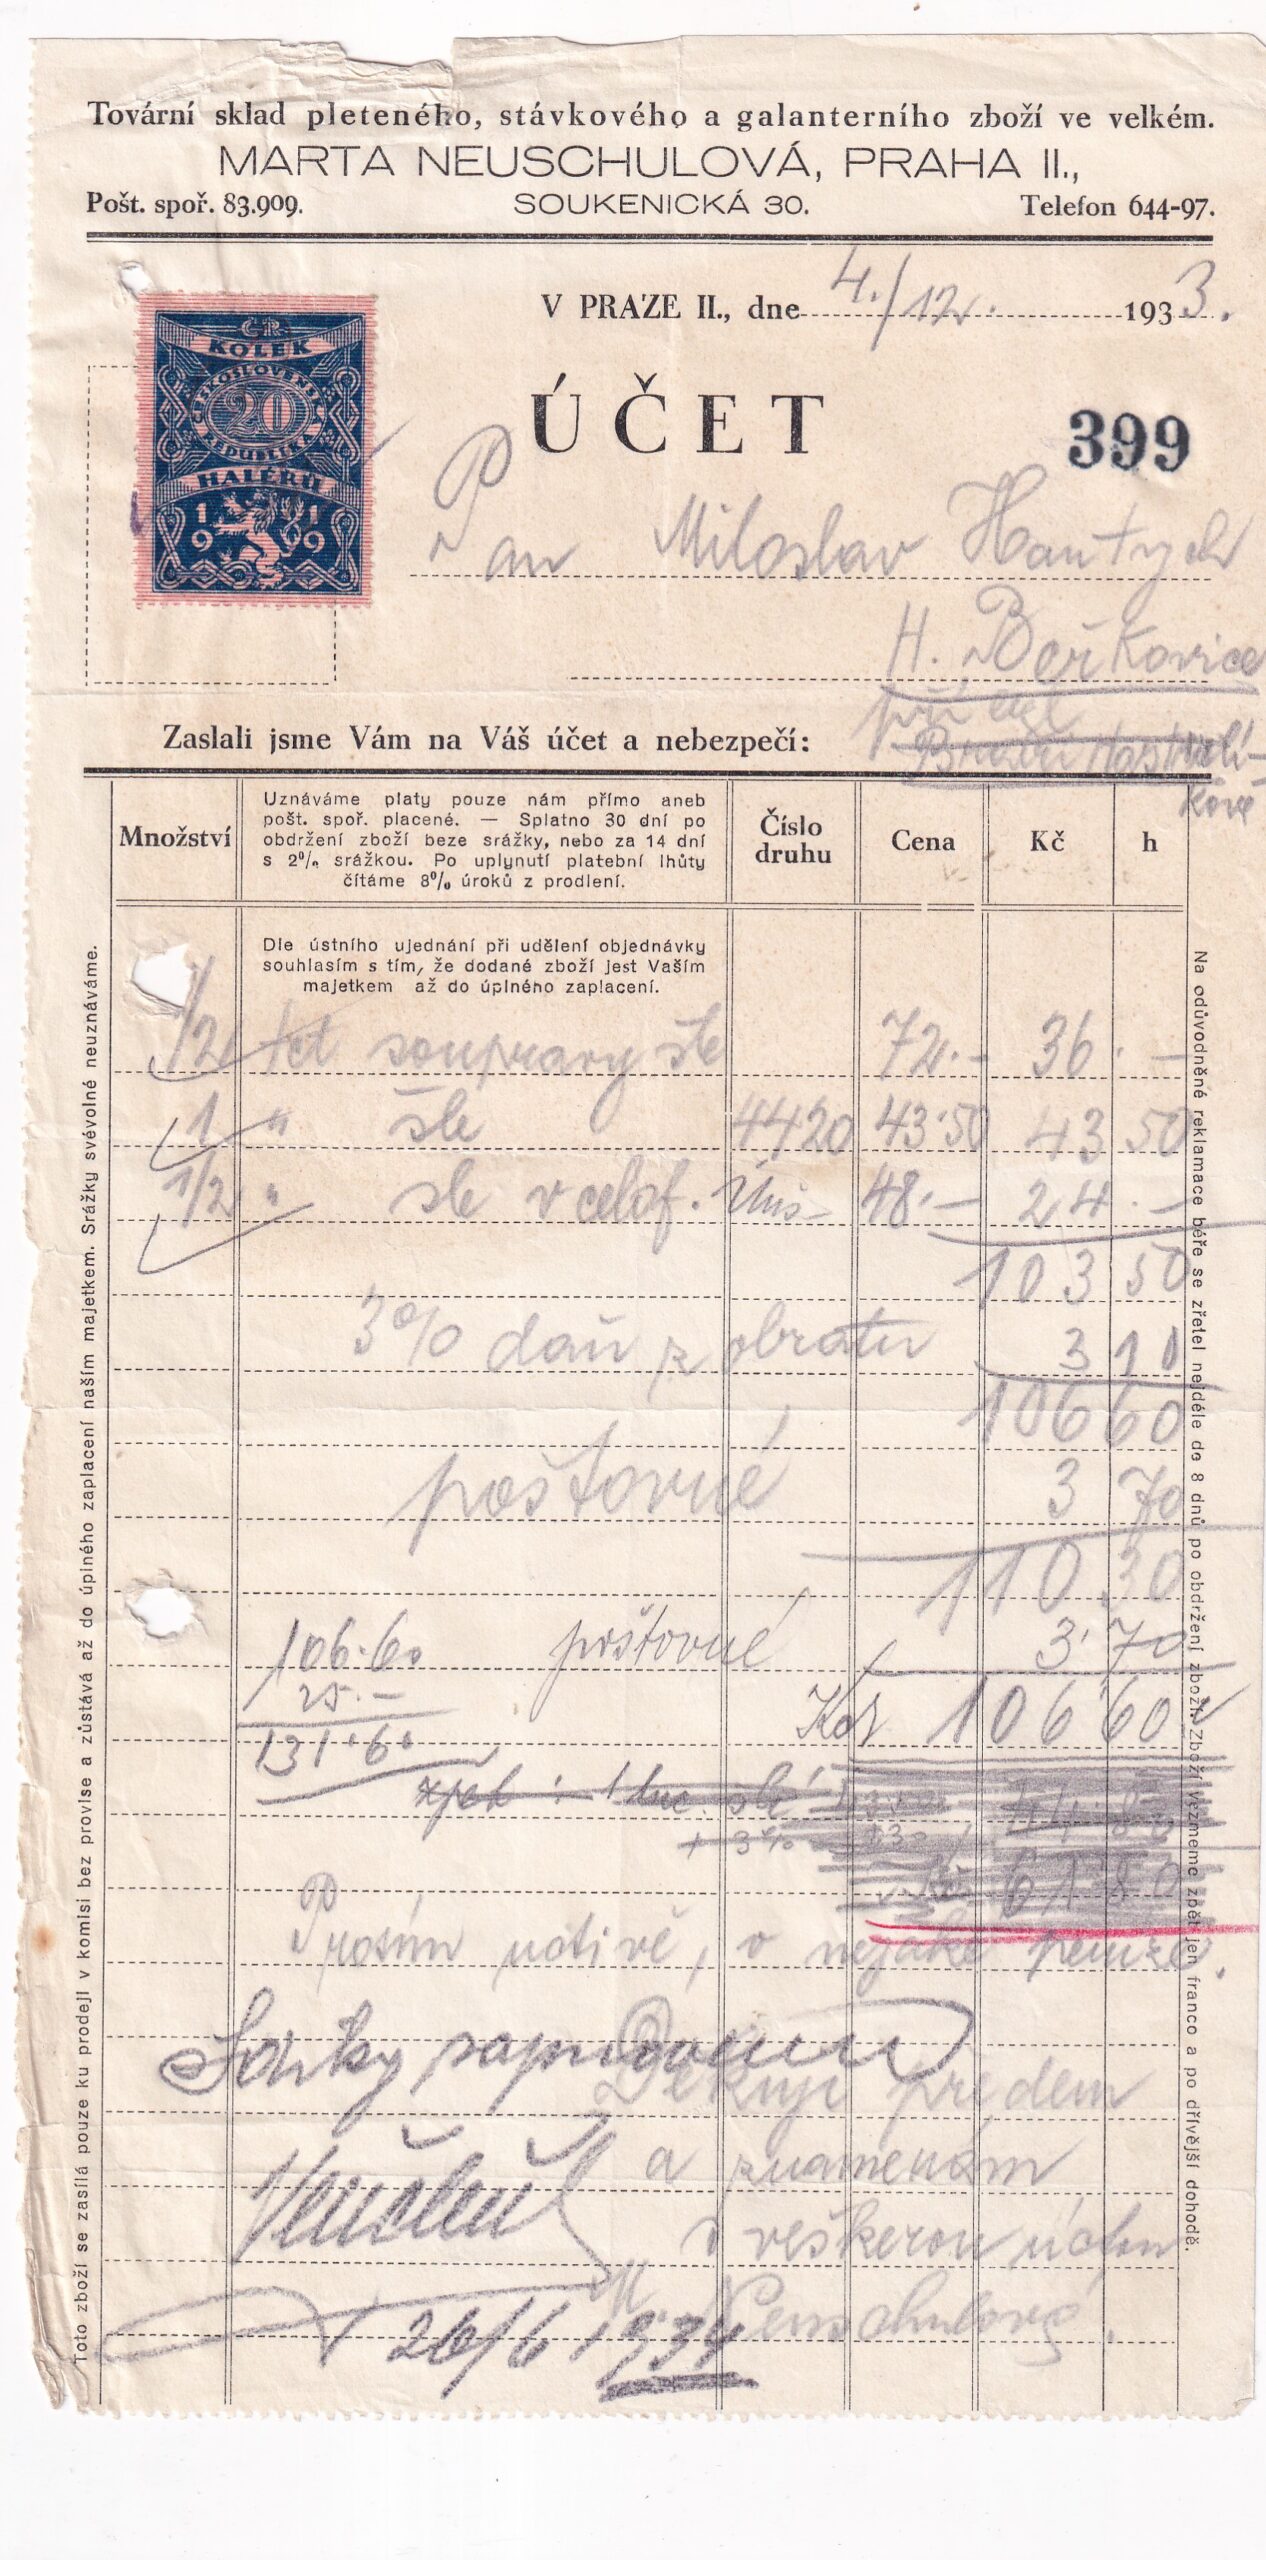 Tovární sklad pleteného, stávkového a galanterního zboží ve velkém.
MARTA NEUSCHULOVÁ, PRAHA II.,
Pošt. spoř. 83.909. SOUKENICKÁ 30. Telefon 644-97.
V PRAZE II., dne 4./12. 1933.
Č.R.
KOLEK
ČESKOSLOVENSKÁ
20
REPUBLIKA
HALÉŘŮ
1919
ÚČET
399
Pan Miloslav Hantych
H. Bořkovice
Zaslali jsme Vám na Váš účet a nebezpečí:
Množství
Uznáváme platy pouze nám přímo aneb
pošt. spoř. placené. — Splatno 30 dní po
obdržení zboží beze srážky, nebo za 14 dní
s 2% srážkou. Po uplynutí platební lhůty
čítáme 8% úroků z prodlení.
Číslo druhu
Cena
Kč
h
Dle ústního ujednání při udělení objednávky
souhlasím s tím, že dodané zboží jest Vaším
majetkem až do úplného zaplacení.
1/2 tct soupravy šle 72.- 36.-
1 " šle 4420 43.50 43 50
1/2 " šle v celof. 48.- 24.-
103 50
3% daň z obratu 3 10
106 60
poštovné 3 70
110 30
106.60 poštovné 3.70
25.- Kč 106 60
131.60
+ 3%
61.80
Prosím uctivě, o nějaké peníze.
Děkuji předem
a znamenám
v veškerou úctou
M. Neuschulová.
26/6 1934
Toto zboží se zasílá pouze ku prodeji v komisi bez provise a zůstává až do úplného zaplacení naším majetkem. Srážky svévolné neuznáváme.
Na odůvodněné reklamace béře se zřetel nejdéle do 8 dnů po obdržení zboží. Zboží vezmeme zpět jen franco a po dřívější dohodě.